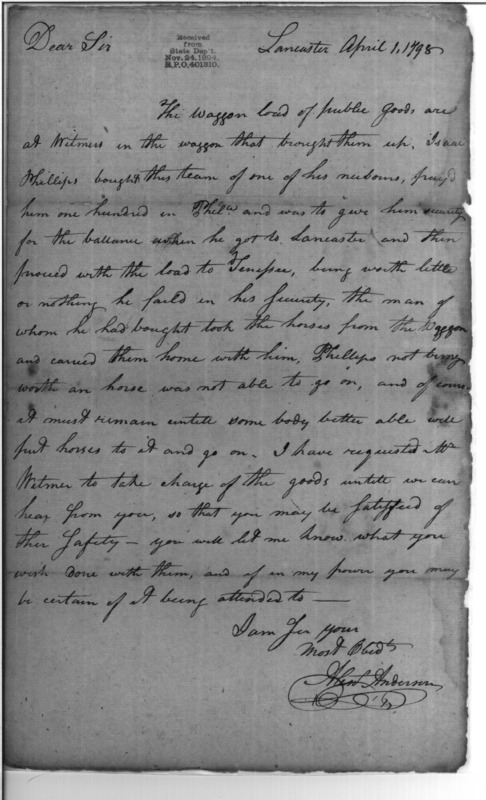 Dear Sir
Received
from
State Dep't.
Nov. 24, 1894.
R.P.O. 401310.
Lancaster April 1, 1798
The waggon load of public goods are
at Witmers in the waggon that brought them up, Isaac
Phillips bought this team of one of his neibours, pay'd
him one hundred in Phila and was to give him security
for the ballance when he got to Lancaster and then
proceed with the load to Tenessee, being worth little
or nothing he faild in his security, the man of
whom he had bought took the horses from the waggon
and carried them home with him, Phillips not being
worth an horse was not able to go on, and of course
it must remain untill some body better able will
put horses to it and go on. I have requested Mr
Witmer to take charge of the goods untill we can
hear from you, so that you may be satisfied of
ther safety — you will let me know what you
wish done with them, and if in my power you may
be certain of it being attended to —
I am Sir your
Most Obedt
Alexr Anderson